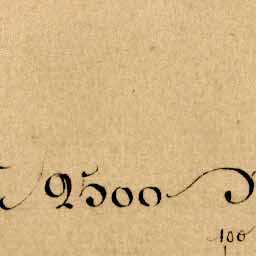 2500
100